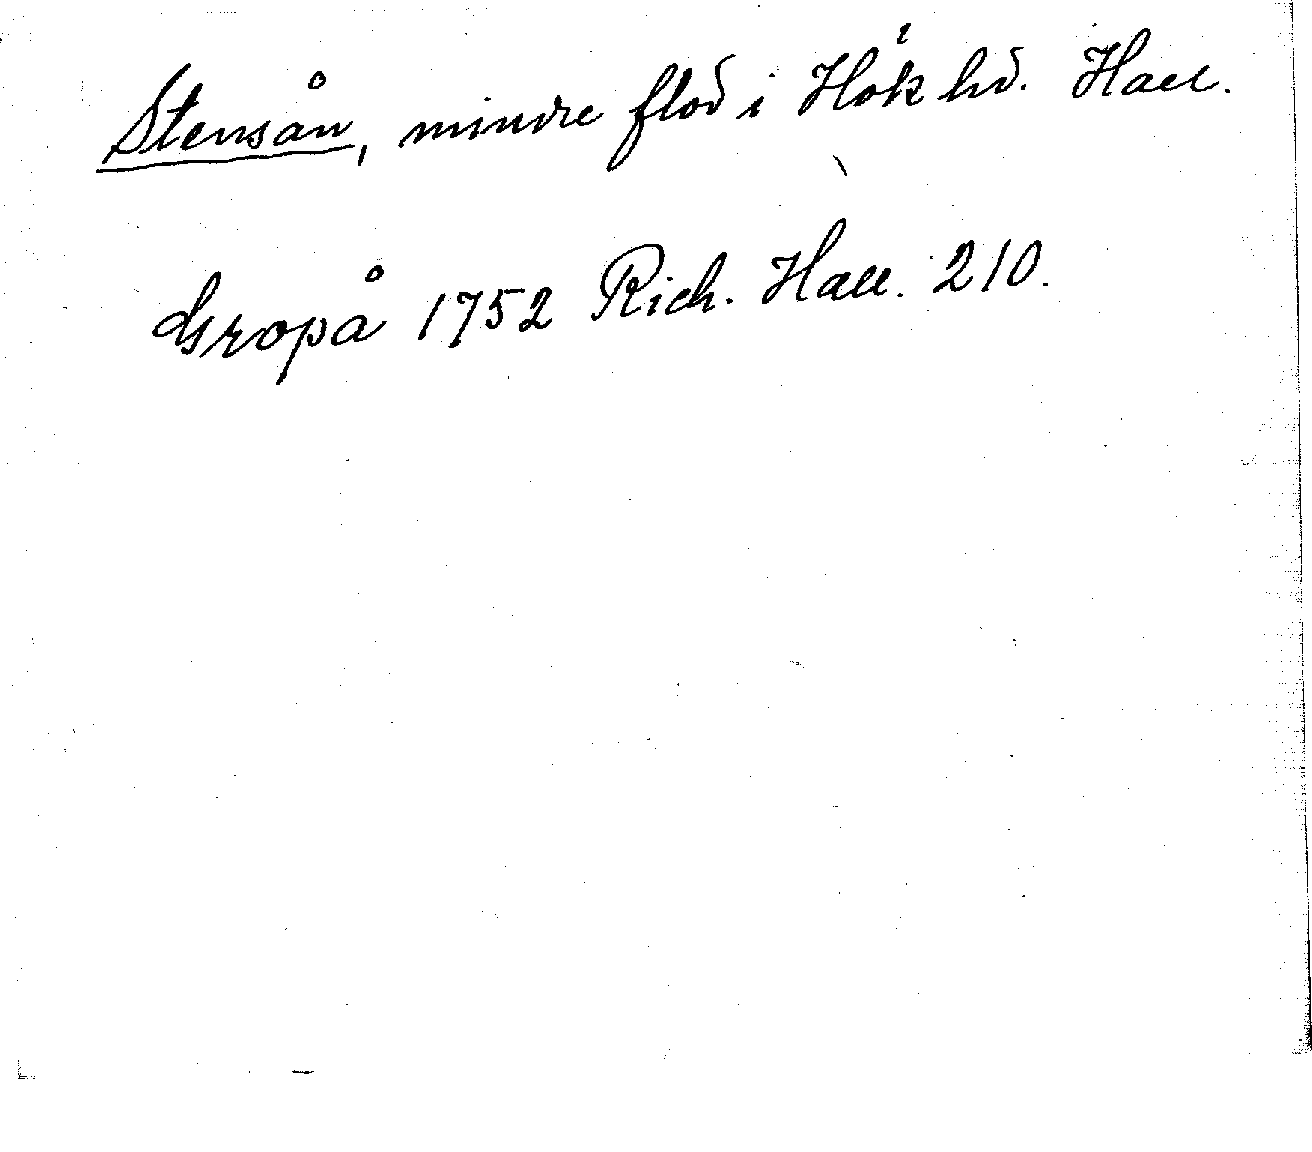 Stensån, mindre flod i Höks hd. Hall.
Gropå 1752 Rich. Hall. 210.